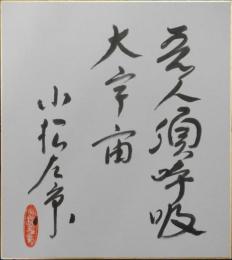 吾人須呼吸
大宇宙
小松左京